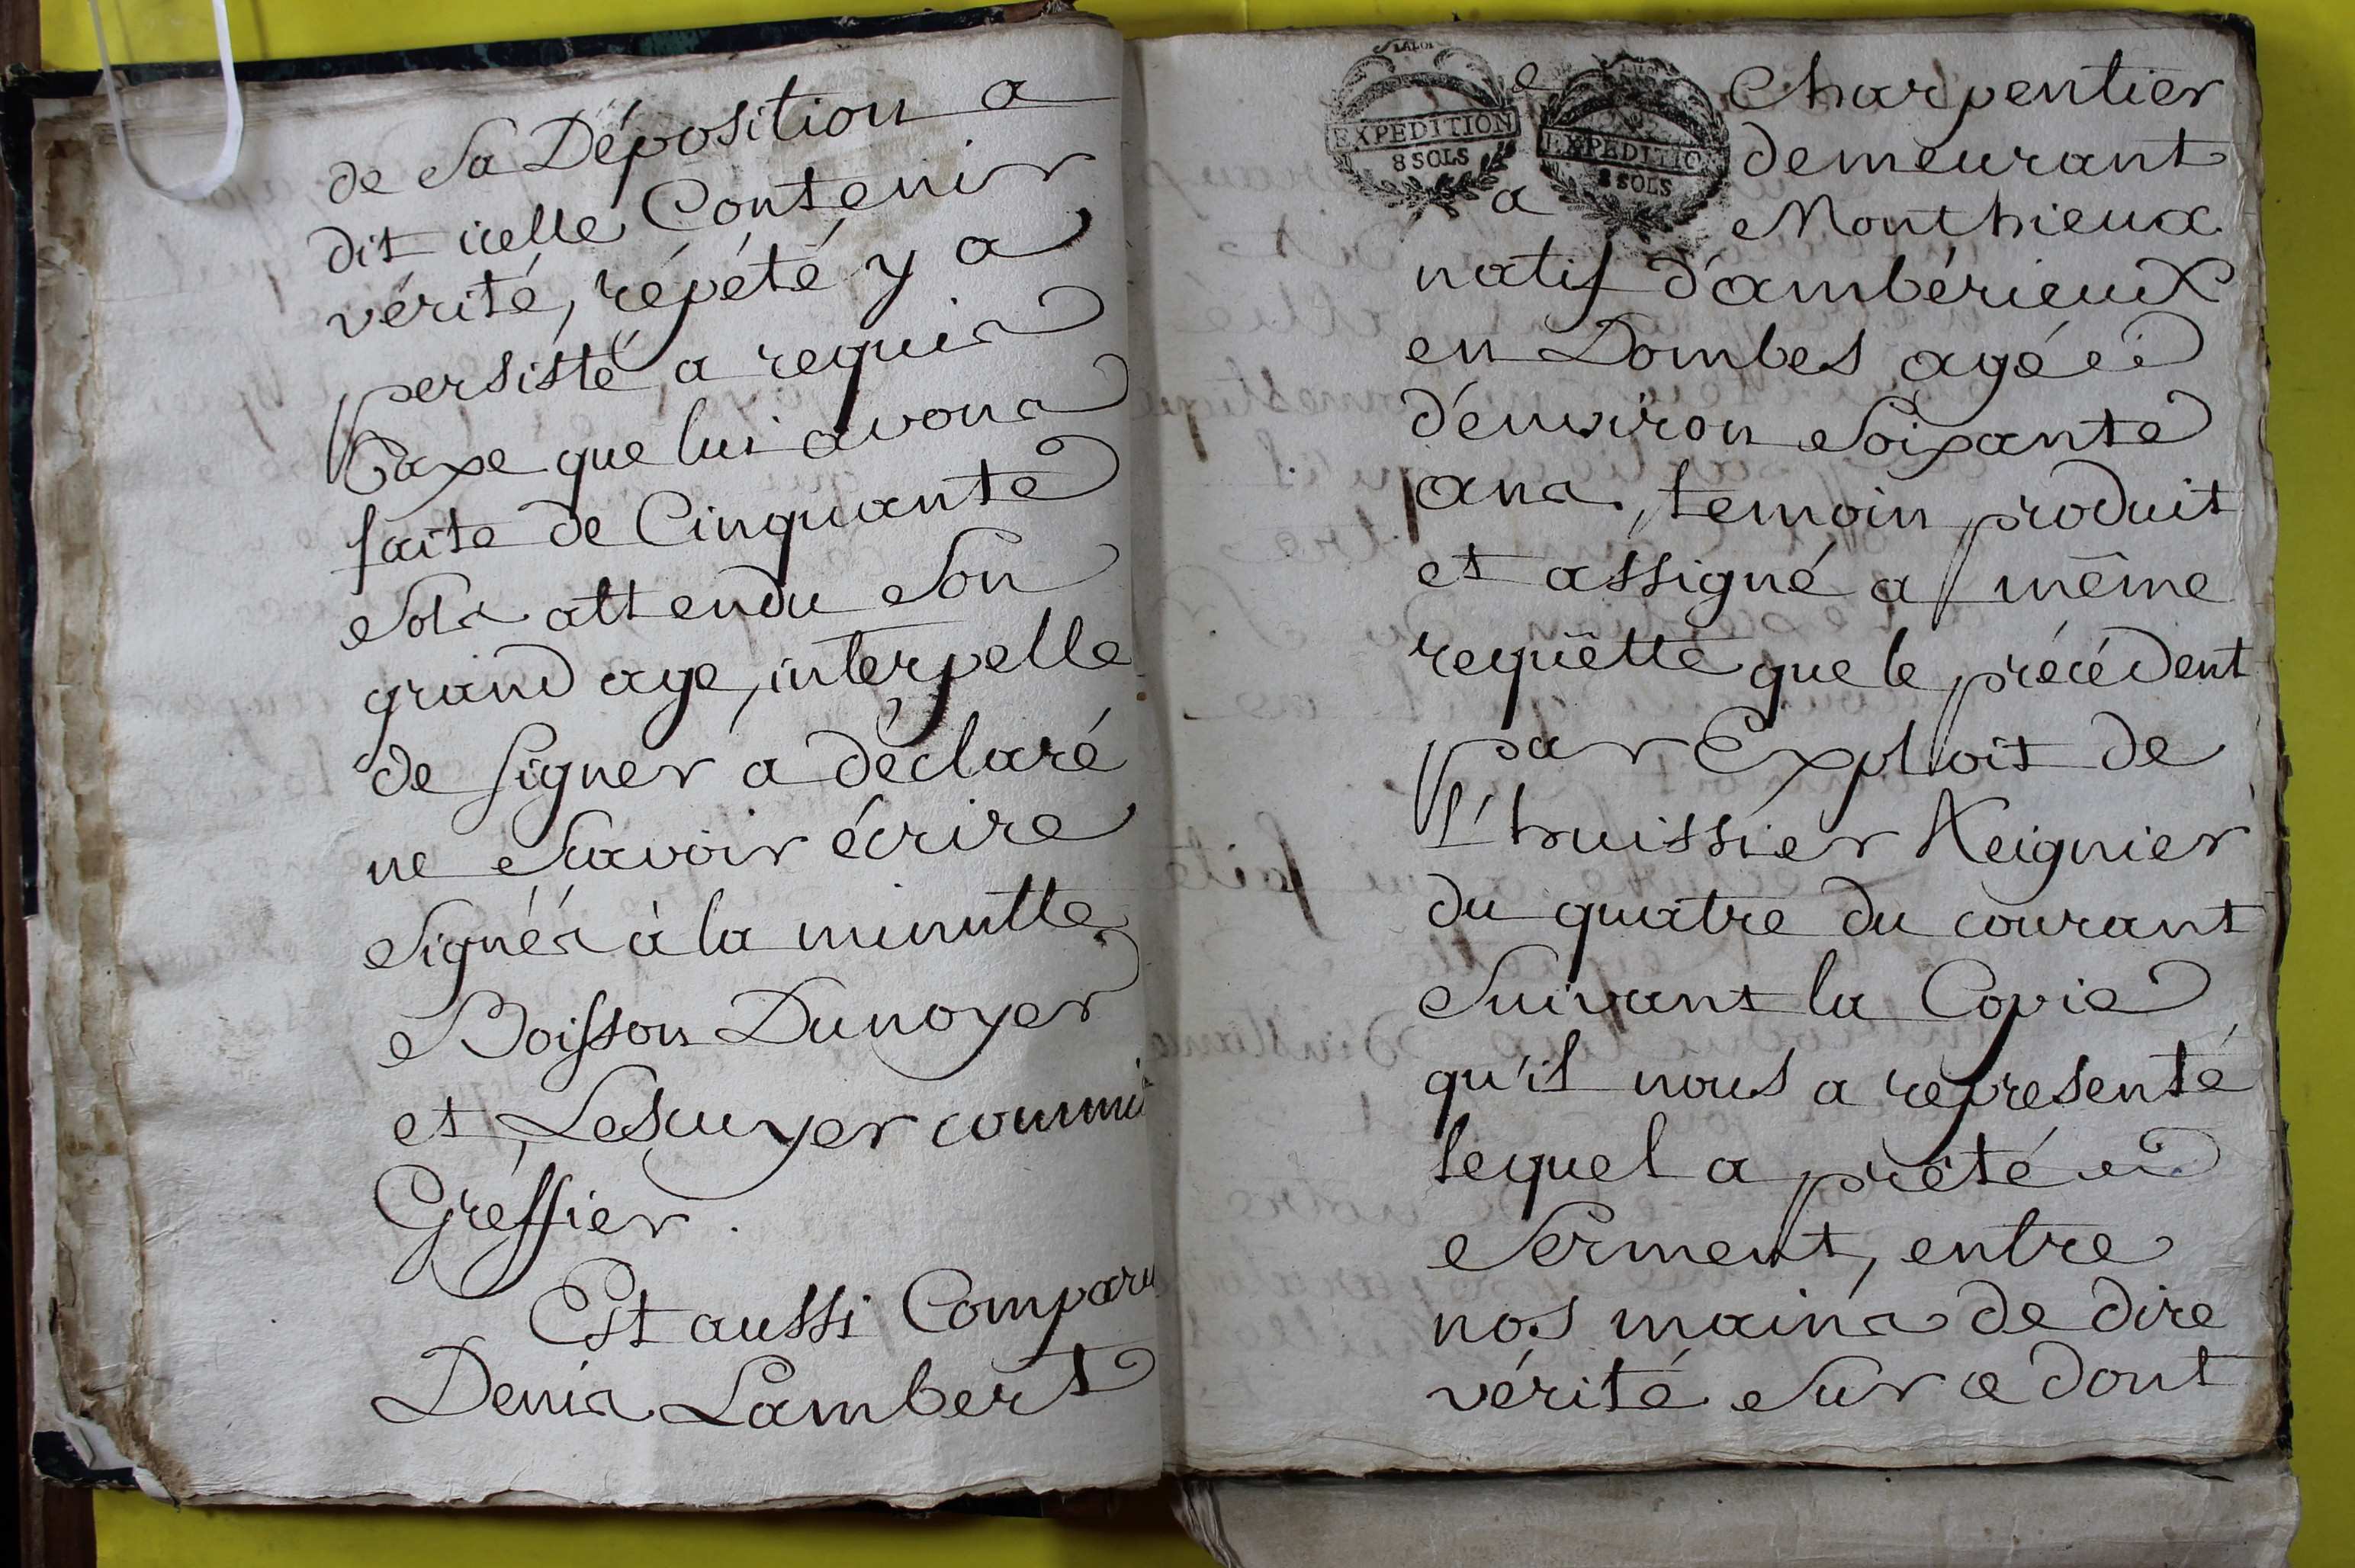 de Sa Déposition a
dit icelle Contenir
vérité, répété y a
persisté a requis
Taxe que lui avons
faite de Cinquante
Sols attendu Son
grand age, interpellé
de Signer a déclaré
ne Scavoir écrire
Signés à la minutte
Boisson Dunoyer
et Lescuyer commis
Gréffier.
Est aussi Comparu
Denis Lambert
LA LOI
EXPEDITION
8 SOLS
LA LOI
EXPEDITIO
8 SOLS
Charpentier
demeurant
a Monthieux
natif d'ambérieux
en Dombes agé
d'environ Soixante
ans, temoin produit
et assigné a même
requêtte que le précédent
par Exploit de
l'huissier Reignier
du quatre du courant
Suivant la Copie
qu'il nous a representé
lequel a prêté
Serment, entre
nos mains de dire
vérité Sur ce dont